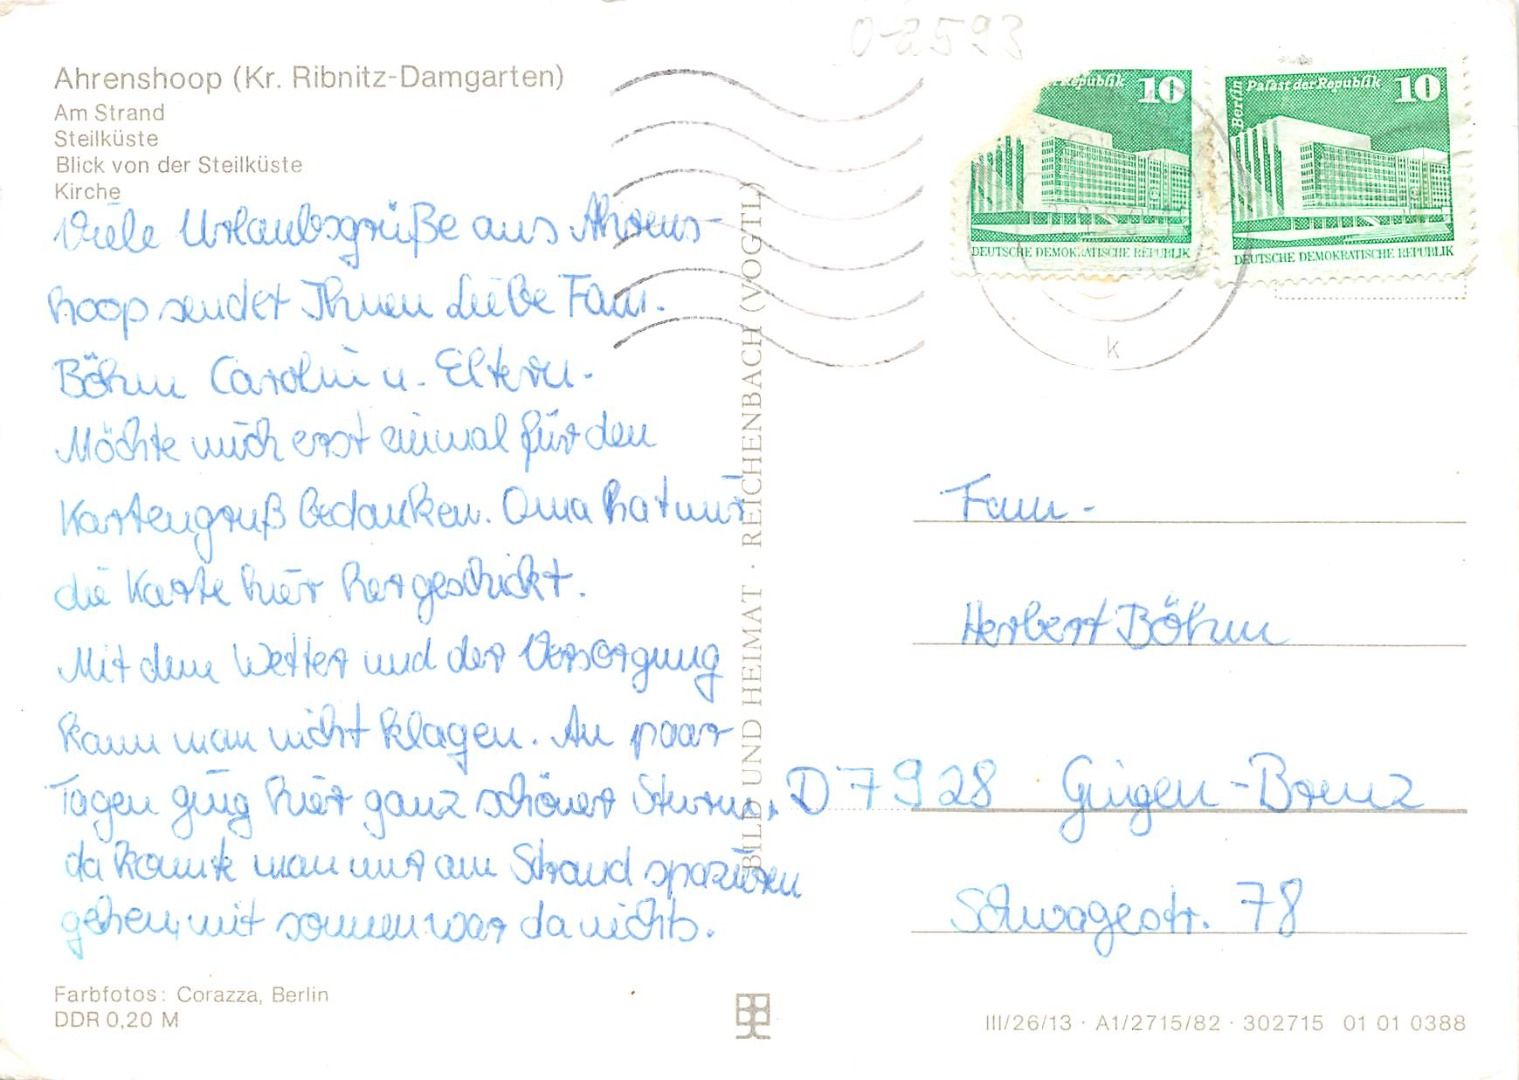 0-2593
Ahrenshoop (Kr. Ribnitz-Damgarten)
Am Strand
Steilküste
Blick von der Steilküste
Kirche
Viele Urlaubsgrüße aus Ahrens-
hoop sendet Ihnen Liebe Fam.
Böhm Carolin u. Eltern.
Möchte mich erst einmal für den
Kartengruß bedanken. Oma hat mir
die Karte hier hergeschickt.
Mit dem Wetter und der Versorgung
kann man nicht klagen. An paar
Tagen ging hier ganz schöner Sturm,
da konnte man nur am Strand spazieren
gehen, mit sonnen war da nichts.
Farbfotos: Corazza, Berlin
DDR 0,20 M
BILD UND HEIMAT · REICHENBACH (VOGTL)
Republik 10
DEUTSCHE DEMOKRATISCHE REPUBLIK
Berlin Palast der Republik 10
DEUTSCHE DEMOKRATISCHE REPUBLIK
k
Fam.
Herbert Böhm
D 7928 Giengen-Brenz
Schwagestr. 78
III/26/13 · A1/2715/82 · 302715 01 01 0388